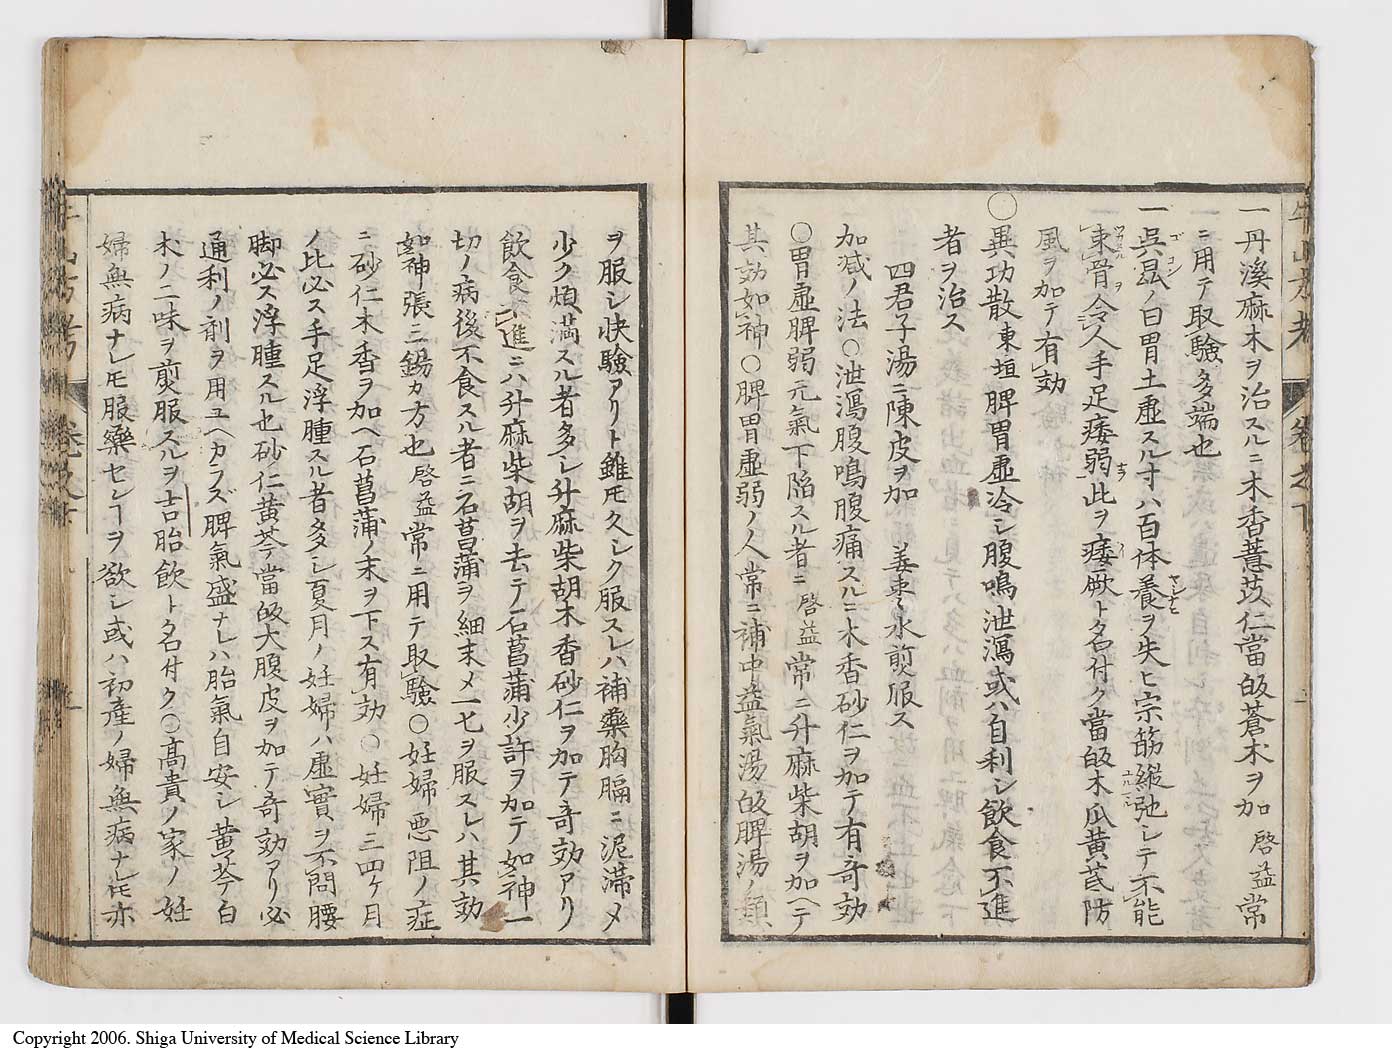 一丹溪麻木ヲ治スルニ木香薏苡仁當皈蒼木ヲ加啓益常
ニ用テ取驗多端也
一呉崑ノ曰胃土虚スル寸ハ百体養ヲ失ヒ宗筋縱弛シテ不能
束骨令人手足痿弱此ヲ痿厥ト名付ク當皈木瓜黄芪防
風ヲ加テ有効
○異功散東垣脾胃虚冷シ腹鳴泄瀉或ハ自利シ飲食不進
者ヲ治ス
四君子湯ニ陳皮ヲ加 姜棗水煎服ス
加减ノ法○泄瀉腹鳴腹痛スルニ木香砂仁ヲ加テ有奇効
○胃虚脾弱元氣下陷スル者ニ啓益常ニ升麻柴胡ヲ加ヘテ
其効如神○脾胃虚弱ノ人常ニ補中益氣湯皈脾湯ノ類
ヲ服シ快驗アリト雖モ久シク服スレハ補藥胸膈ニ泥滯メ
少ク煩滿スル者多シ升麻柴胡木香砂仁ヲ加テ奇効アリ
飲食不進ニハ升麻柴胡ヲ去テ石菖蒲少許ヲ加テ如神一
切ノ病後不食スル者ニ石菖蒲ヲ細末メ一匕ヲ服スレハ其効
如神張三錫カ方也啓益常ニ用テ取驗○妊婦悪阻ノ症
ニ砂仁木香ヲ加ヘ石菖蒲ノ末ヲ下ス有効○妊婦三四ケ月
ノ比必ス手足浮腫スル者多シ夏月ノ妊婦ハ虚實ヲ不問腰
脚必ス浮腫スル也砂仁黄芩當皈大腹皮ヲ加テ奇効アリ必
通利ノ剤ヲ用ユヘカラズ脾氣盛ナレハ胎氣自安シ黄芩白
朮ノ二味ヲ煎服スルヲ古胎飲ト名付ク○髙貴ノ家ノ妊
婦無病ナレモ服藥セシヿヲ欲シ或ハ初産ノ婦無病ナレモ亦
牛山方考 卷之下
Copyright 2006. Shiga University of Medical Science Library